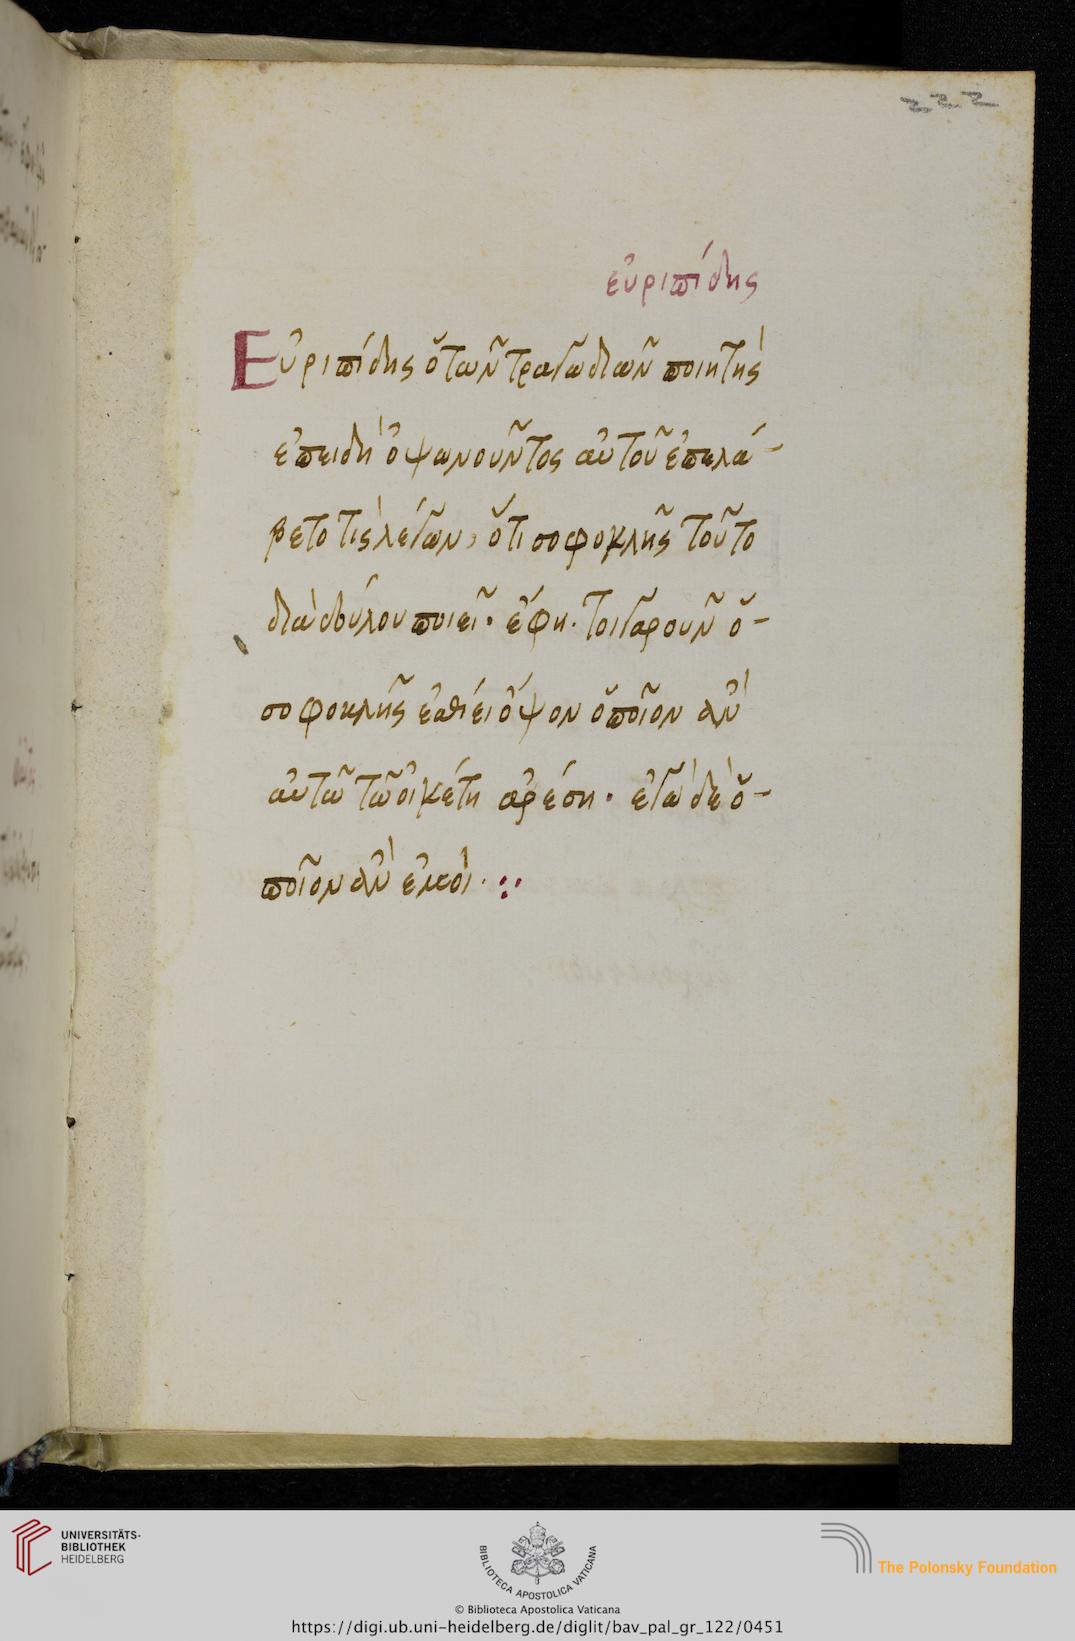 222
εὐριπίδης
Εὐριπίδης ὁ τῶν τραγωδιῶν ποιητὴς
ἐπειδὴ ὀψωνοῦντος αὐτοῦ ἐπελά-
βετο τὶς λέγων, ὅτι σοφοκλῆς τοῦτο
διὰ δούλου ποιεῖ· ἔφη· τοιγαροῦν ὁ-
σοφοκλῆς ἐσθίει ὄψον ὁποῖον ἂν
αὐτῶ τῶ οἰκέτη ἀρέση· ἐγὼ δὲ ὁ-
ποῖον ἂν ἐμοὶ·
UNIVERSITÄTS-
BIBLIOTHEK
HEIDELBERG
BIBLIOTECA APOSTOLICA VATICANA
The Polonsky Foundation
© Biblioteca Apostolica Vaticana
https://digi.ub.uni-heidelberg.de/diglit/bav_pal_gr_122/0451